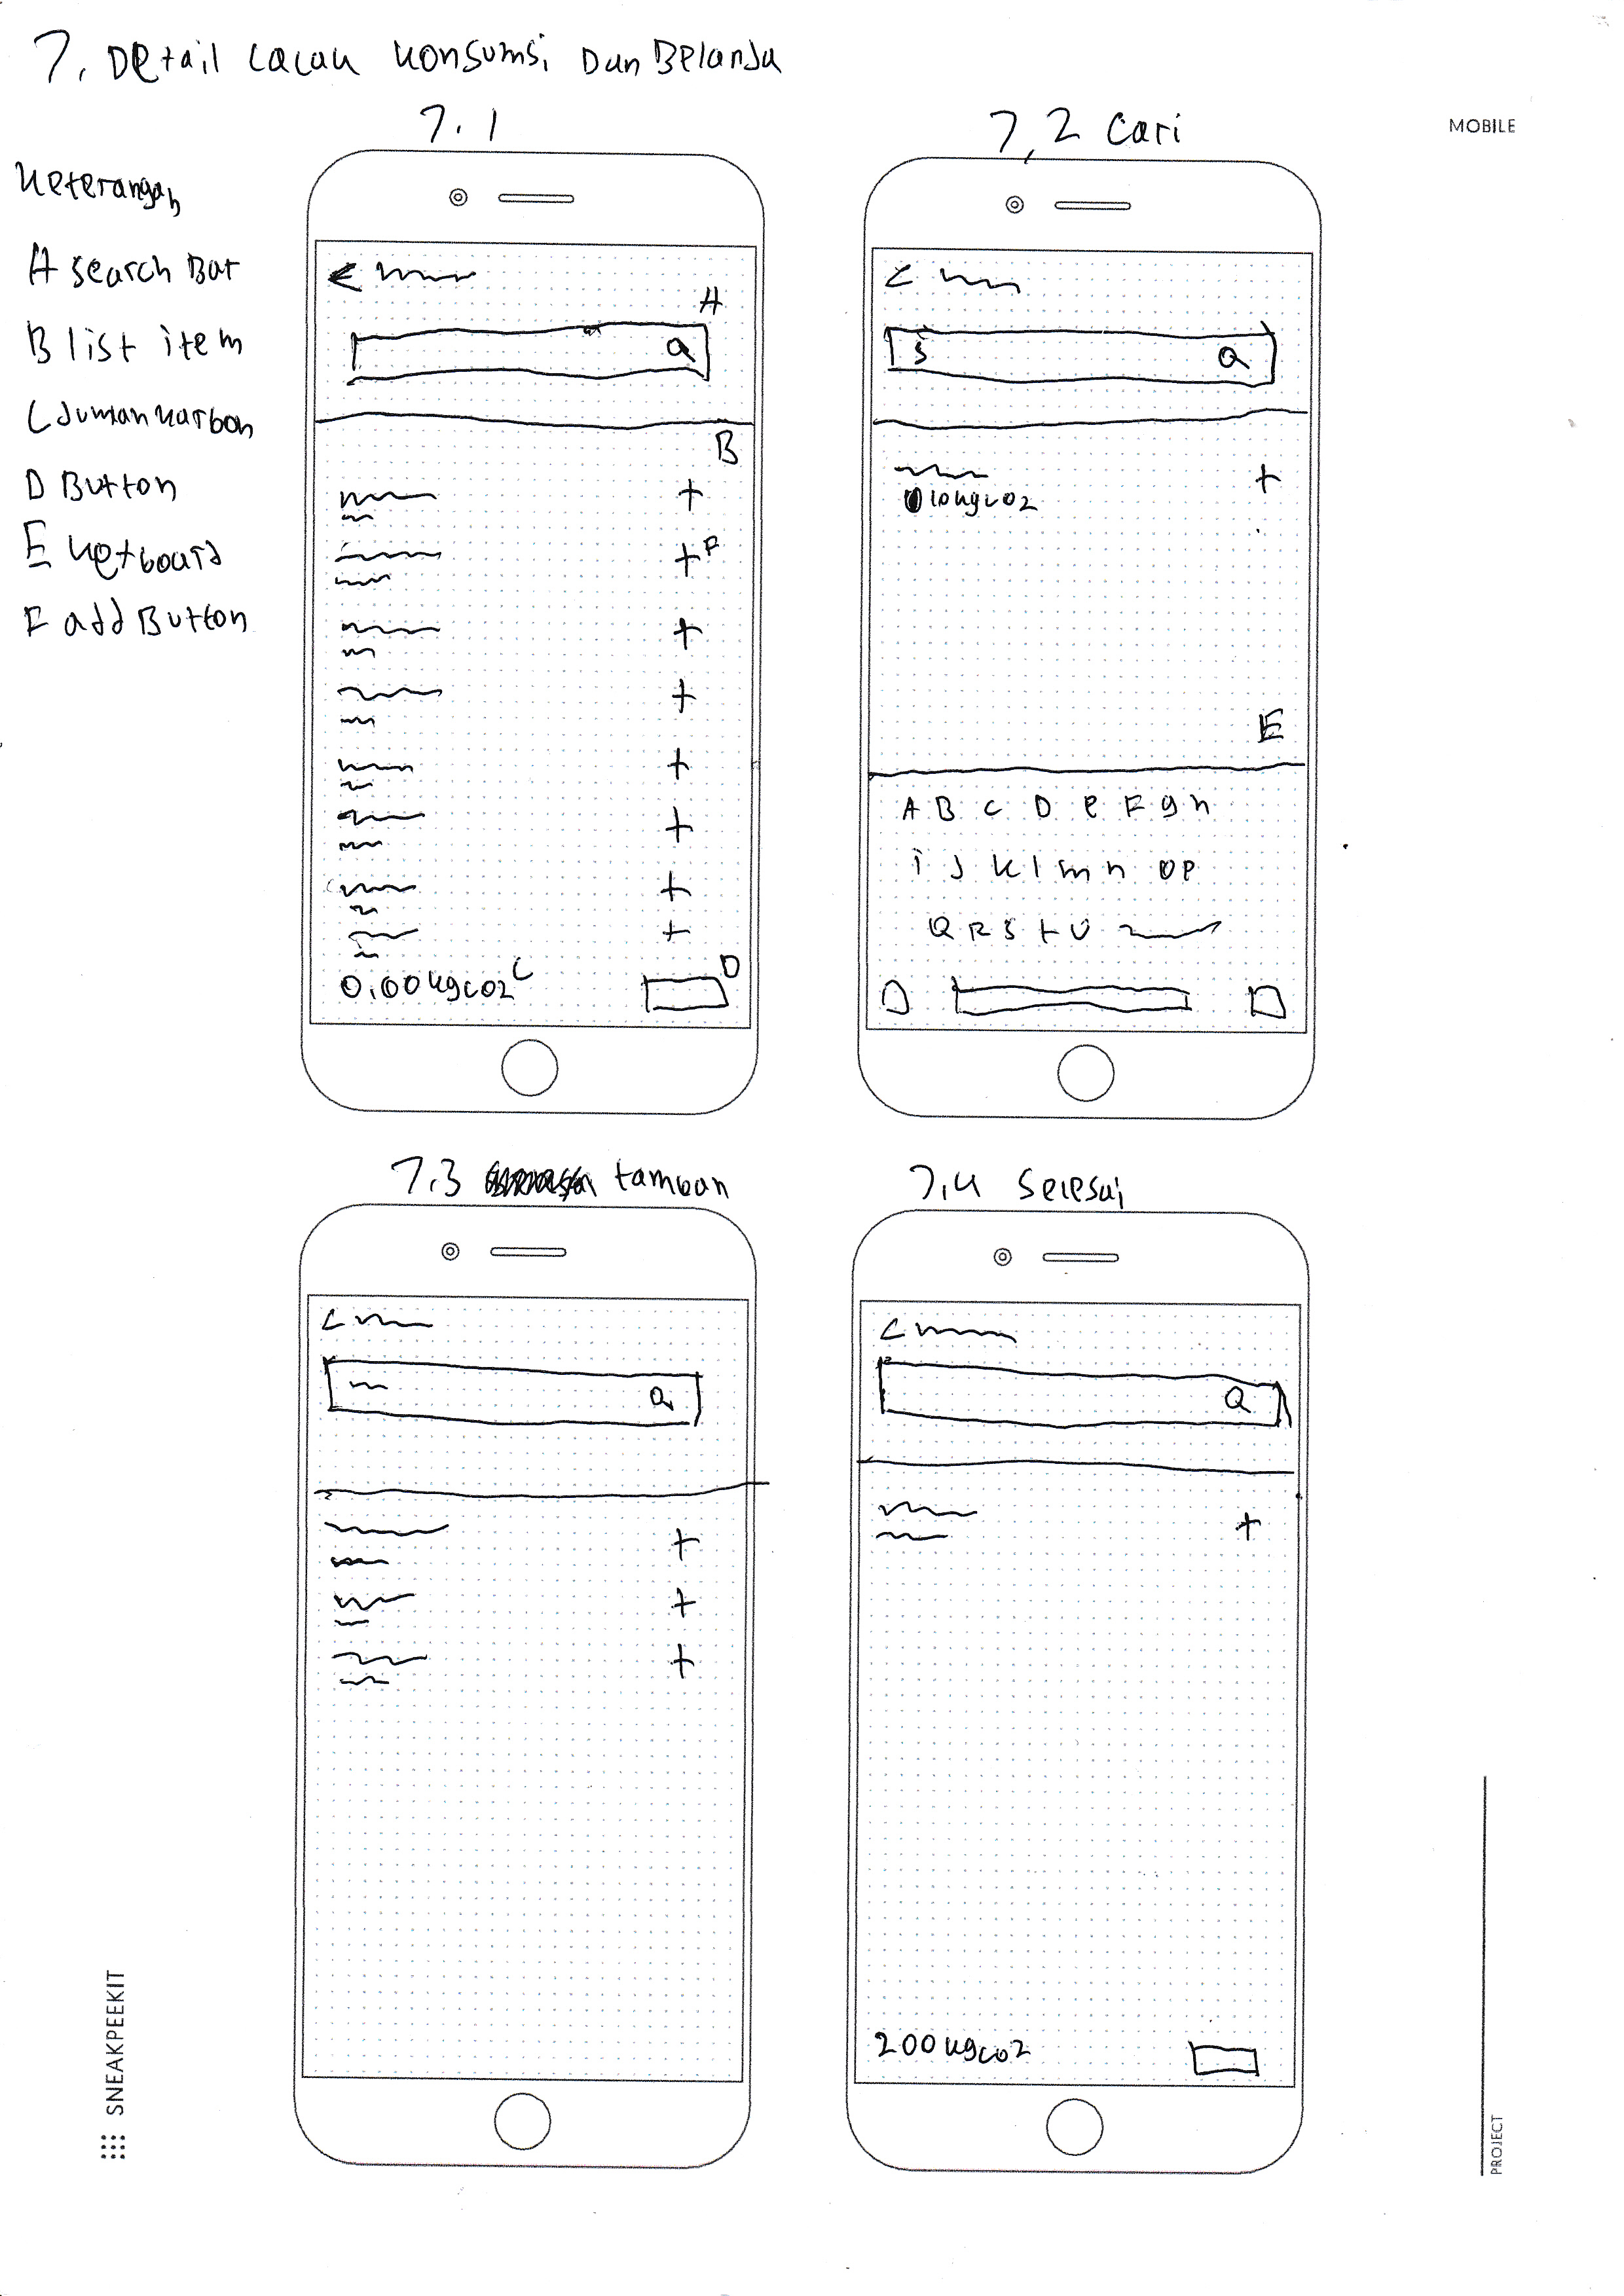 7. Detail Lacak Konsumsi Dan Belanja
7.1
7.2 Cari
MOBILE
Keterangan
A Search Bar
B list item
C Jumlah Karbon
D Button
E Keyboard
F add Button
A
Q
B
+
+ F
+
+
+
+
+
+
0,00 kgco2 C
D
S
Q
+
10 kgco2
E
A B C D e F g h
i J k l m n o p
Q R S t U
7.3 tambah
7.4 Selesai
Q
+
+
+
Q
+
200 kgco2
SNEAKPEEKIT
PROJECT